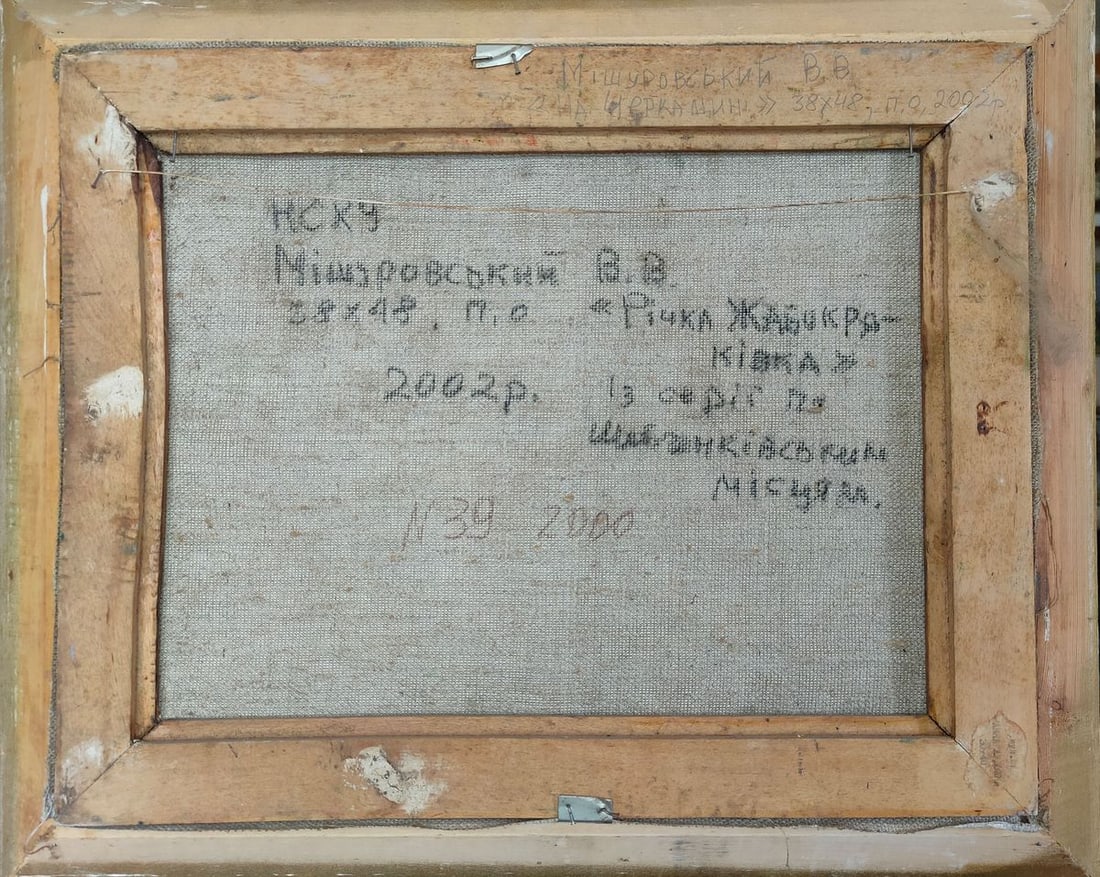 Мішуровський В.В
«На Черкащині» 38х48, п.о, 2002р
НСХУ
Мішуровський В.В.
38х48. п.о «Річка Жабокря-
ківка»
2002р. Із серії по
Шевченківським
місцям.
N39 2000